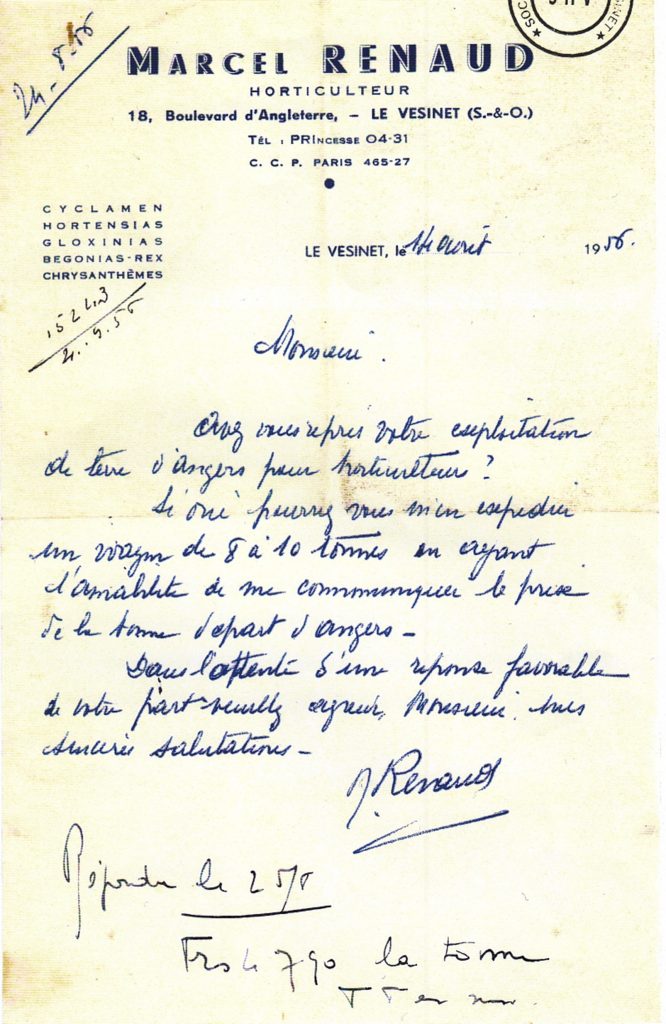 24-8-56
MARCEL RENAUD
HORTICULTEUR
18, Boulevard d'Angleterre, - LE VESINET (S.-&-O.)
TÉL : PRINCESSE 04-31
C. C. P. PARIS 465-27
CYCLAMEN
HORTENSIAS
GLOXINIAS
BEGONIAS-REX
CHRYSANTHÈMES
LE VESINET, le août 1956.
Monsieur.
Avez vous repris votre exploitation
de terre d'Angers pour horticulteurs ?
Si oui pourrez vous m'en expedier
un wagon de 8 à 10 tonnes en ayant
l'amabilité de me communiquer le prix
de la tonne depart d'angers -
Dans l'attente d'une reponse favorable
de votre part veuillez agreer, Monsieur, mes
sinceres salutations -
M. Renaud
Répondu le 25/8
Frs 790 la tonne